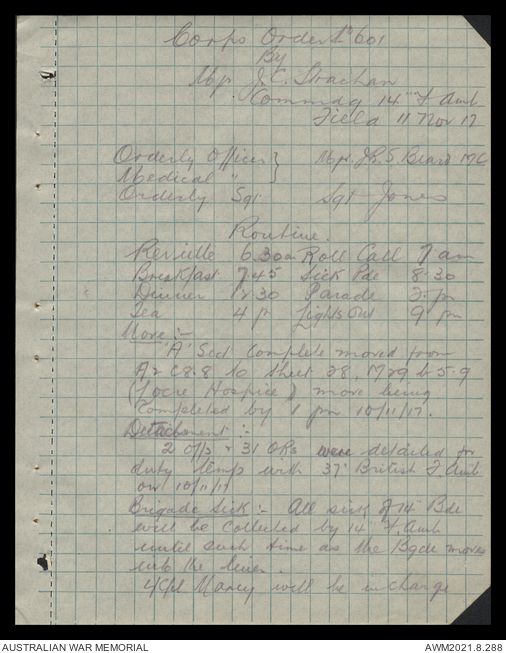 Corps Order No 601
By
Mjr J.C. Strachan
Commdg 14th F. Amb
Field 11 Nov 17
Orderly Officer } Mjr. J.R.S. Beard MC
Medical "
Orderly Sgt Sgt Jones
Routine.
Reveille 6.30am Roll Call 7 am
Breakfast 7.45 Sick Pde 8.30
Dinner 12 30 Parade 2. pm
Tea 4 p Lights Out 9 pm
Move :-
'A' Sect Complete moved from
to Sheet 28. M29 b 5.9
(Locre Hospice) move being
Completed by 1 pm 10/11/17.
Detachment :-
2 offs + 31 ORs were detailed for
duty temp with 37th British F. Amb
on 10/11/17
Brigade Sick :- All sick of 14th Bde
will be collected by 14th F. Amb
until such time as the Bgde moves
into the line.
will be in charge
AUSTRALIAN WAR MEMORIAL
AWM2021.8.288